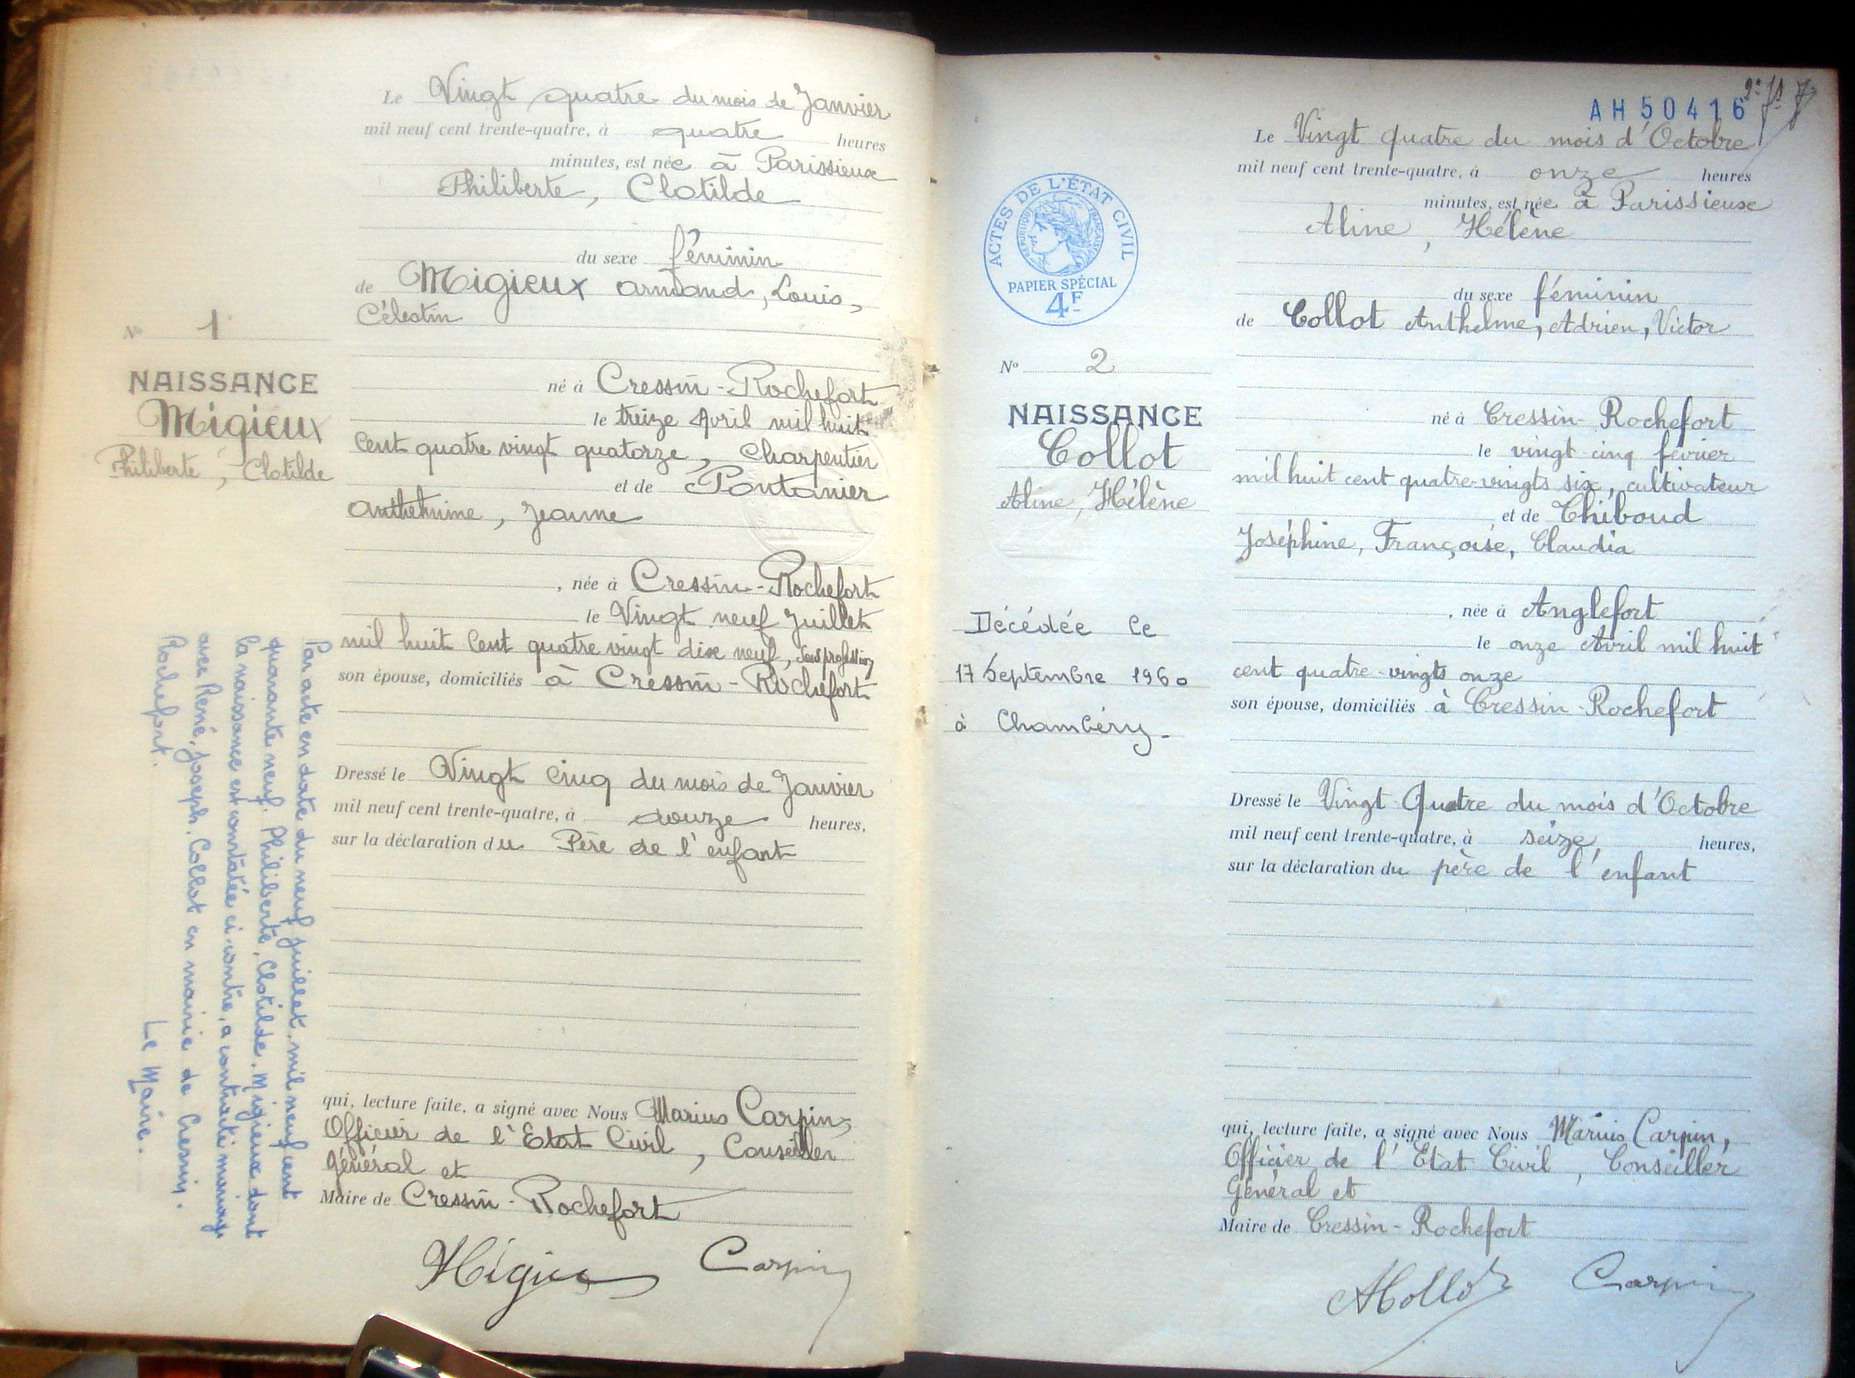 Le Vingt quatre du mois de Janvier
mil neuf cent trente-quatre, à quatre heures
minutes, est née à Parissieux
Philiberte, Clotilde
du sexe féminin
de Migieux armand, Louis,
Célestin
né à Cressin-Rochefort
le treize Avril mil huit
Cent quatre vingt quatorze, Charpentier
et de Pontanier
anthelmine, Jeanne
, née à Cressin-Rochefort
le Vingt neuf Juillet
mil huit Cent quatre vingt dix neuf, sans profession
son épouse, domiciliés à Cressin-Rochefort
Dressé le Vingt cinq du mois de Janvier
mil neuf cent trente-quatre, à douze heures,
sur la déclaration du Père de l'enfant
qui, lecture faite, a signé avec Nous Marius Carpin,
Officier de l'Etat Civil, Conseiller
général et
Maire de Cressin-Rochefort
Migieux Carpin
No 1
NAISSANCE
Migieux
Philiberte, Clotilde
Par acte en date du neuf juillet mil neuf cent
quarante neuf, Philiberte, Clotilde Migieux dont
la naissance est constatée ci-contre, a contracté mariage
avec René, Joseph, Collot en mairie de Cressin
Rochefort.
Le Maire.
AH50416
Le Vingt quatre du mois d'Octobre
mil neuf cent trente-quatre, à onze heures
minutes, est née à Parissieux
Aline, Hélène
du sexe féminin
de Collot Anthelme, Adrien, Victor
né à Cressin-Rochefort
le vingt cinq février
mil huit cent quatre-vingts six, cultivateur
et de Thiboud
Joséphine, Françoise, Claudia
, née à Anglefort
le onze Avril mil huit
cent quatre-vingts onze
son épouse, domiciliés à Cressin-Rochefort
Dressé le Vingt Quatre du mois d'Octobre
mil neuf cent trente-quatre, à seize, heures,
sur la déclaration du père de l'enfant
qui, lecture faite, a signé avec Nous Marius Carpin,
Officier de l'Etat Civil, Conseiller
Général et
Maire de Cressin-Rochefort
Collot Carpin
ACTES DE L'ÉTAT CIVIL
PAPIER SPÉCIAL
4F
No 2
NAISSANCE
Collot
Aline, Hélène
Décédée le
17 Septembre 1960
à Chambéry